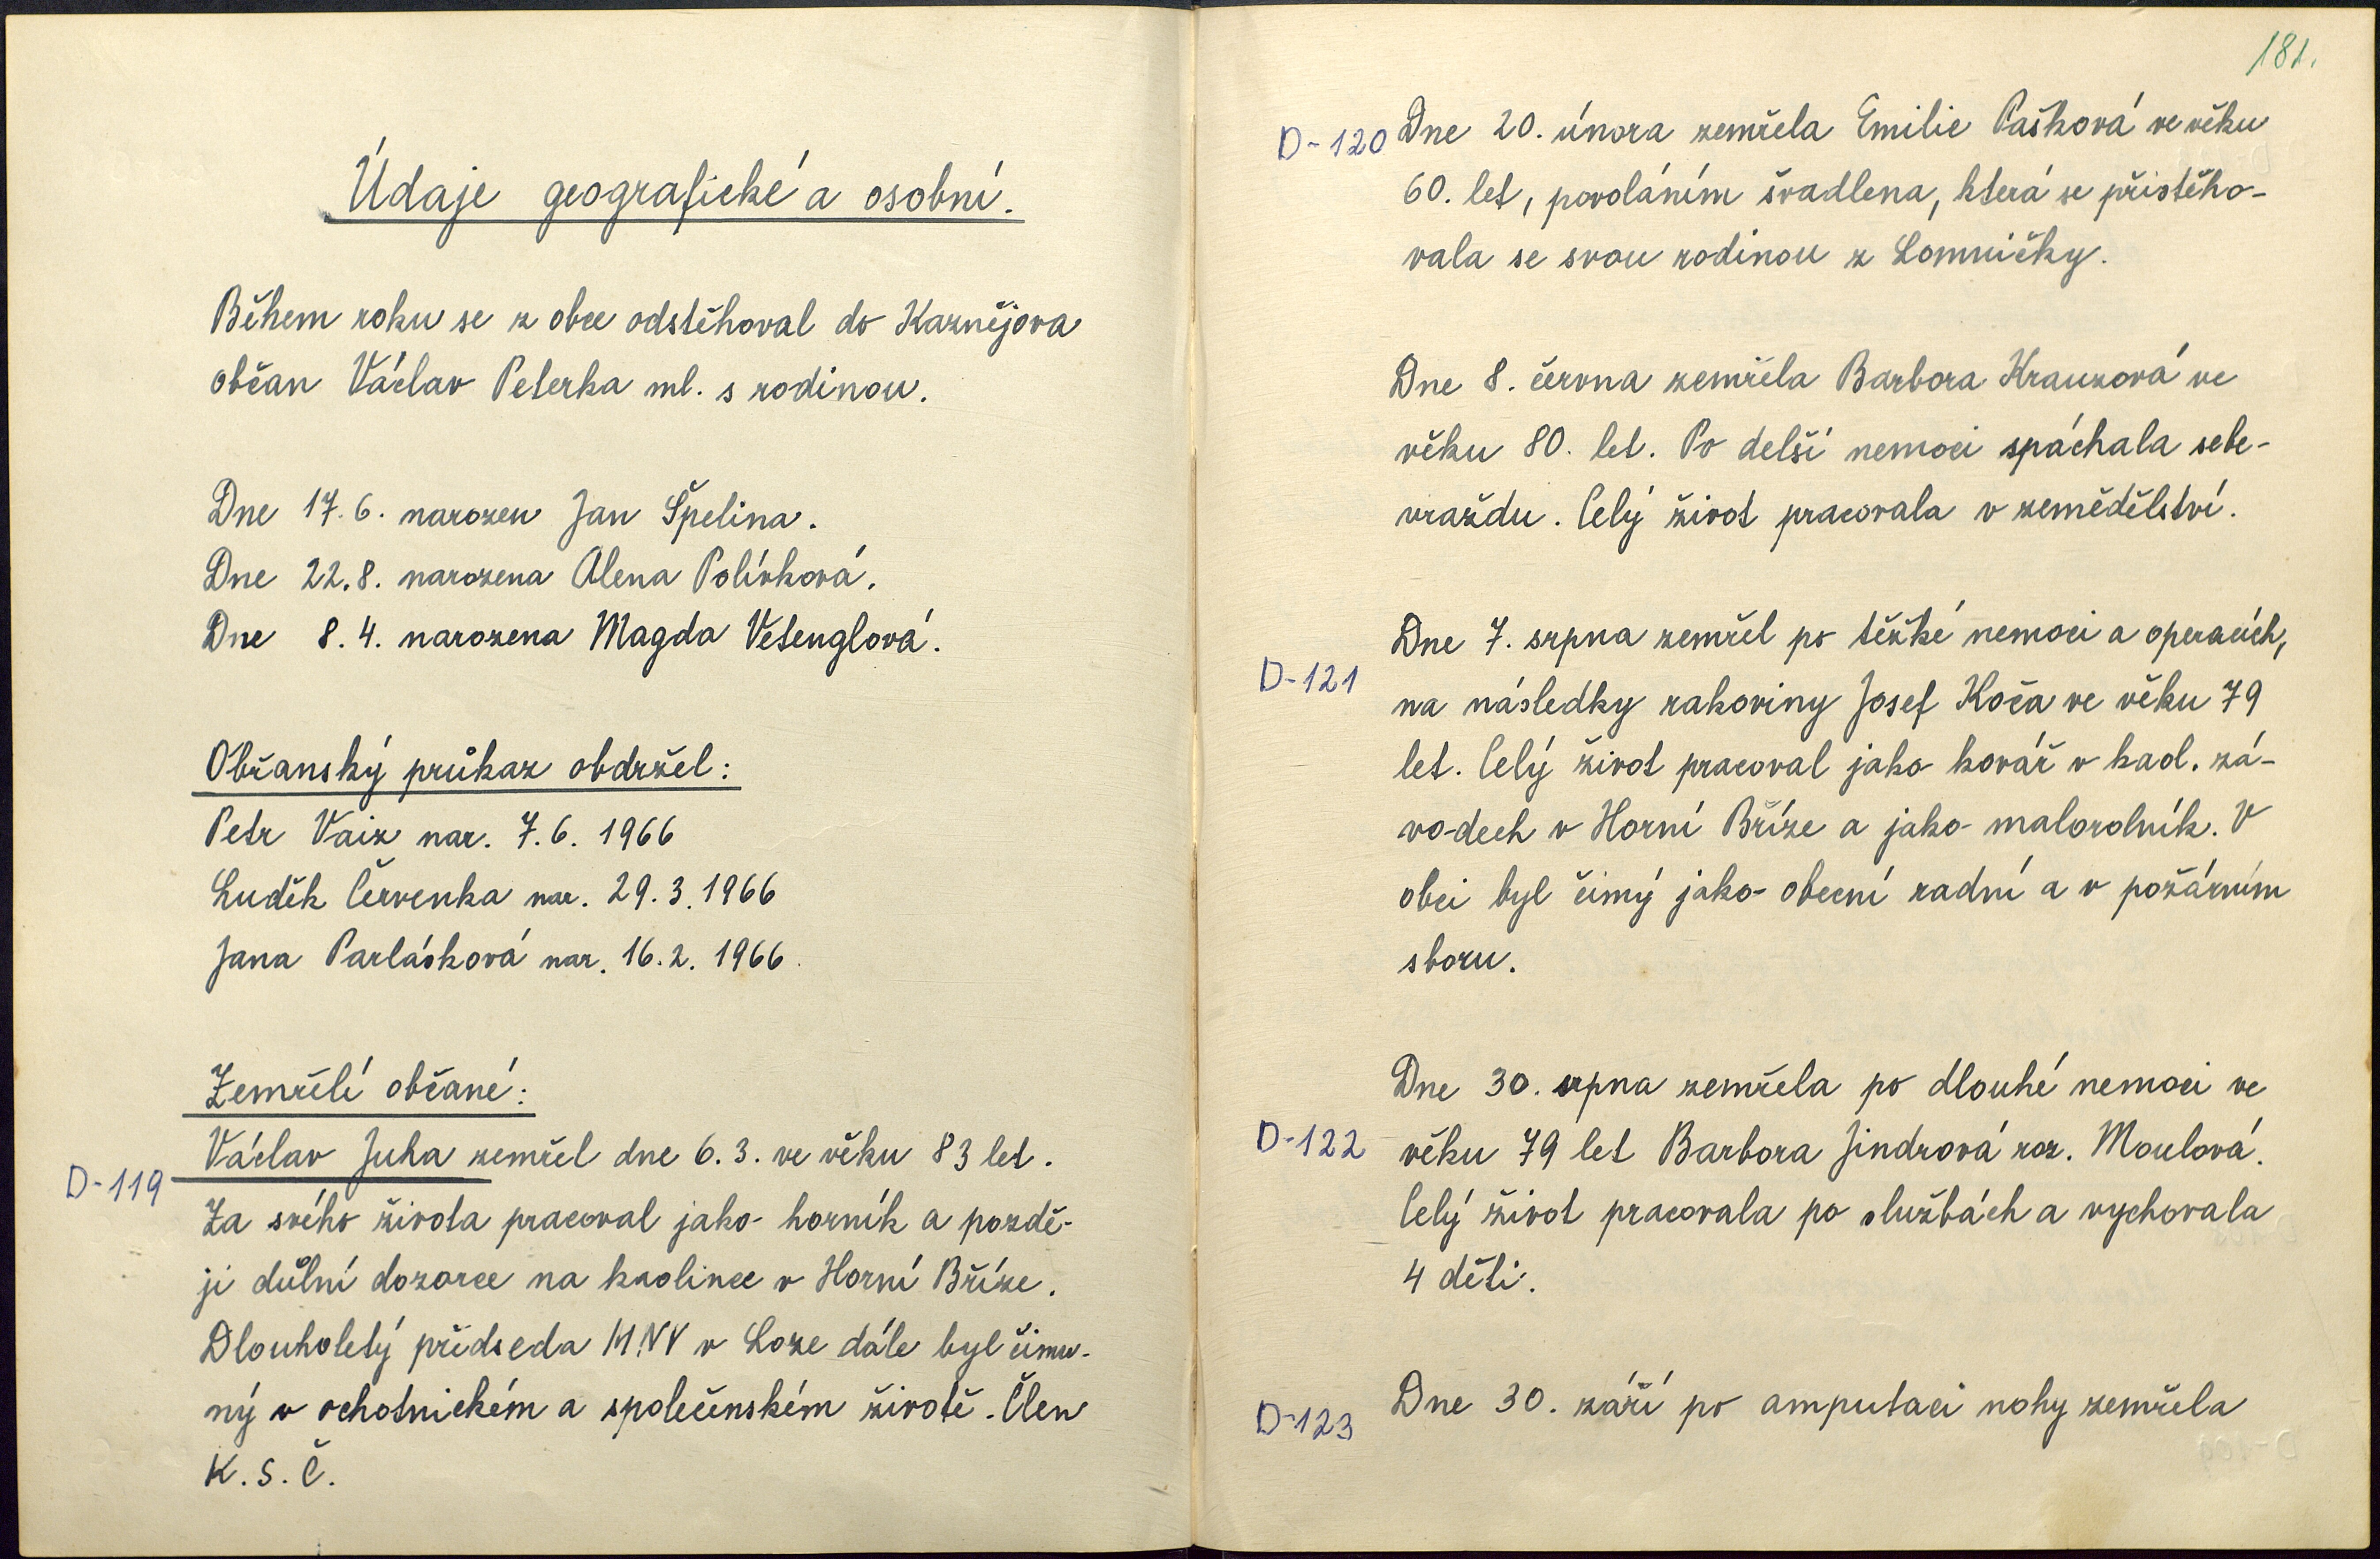 Údaje geografické a osobní.
Během roku se z obce odstěhoval do Kaznějova
občan Václav Peterka ml. s rodinou.
Dne 17.6. narozen Jan Špelina.
Dne 22.8. narozena Alena Polívková.
Dne 8.4. narozena Magda Vetenglová.
Občanský průkaz obdržel:
Petr Vaiz nar. 7.6. 1966
Luděk Červenka nar. 29.3.1966
Jana Parlásková nar. 16.2. 1966.
Zemřelí občané:
Václav Juha zemřel dne 6.3. ve věku 83 let.
D-119
Za svého života pracoval jako horník a pozdě-
ji důlní dozorce na kaolince v Horní Bříze.
Dlouholetý předseda M.N.V v Loze dále byl činn-
ný v ochotnickém a společenském životě. Člen
K.S.Č.
181.
D-120 Dne 20. února zemřela Emilie Pašková ve věku
60. let, povoláním švadlena, která se přistěho-
vala se svou rodinou z Lomničky.
Dne 8. června zemřela Barbora Krauzová ve
věku 80. let. Po delší nemoci spáchala sebe-
vraždu. Celý život pracovala v zemědělství.
Dne 7. srpna zemřel po těžké nemoci a operacích,
D-121
na následky rakoviny Josef Koča ve věku 79
let. Celý život pracoval jako kovář v kaol. zá-
vo-dech v Horní Bříze a jako malorolník. V
obci byl činný jako obecní radní a v požárním
sboru.
Dne 30. srpna zemřela po dlouhé nemoci ve
D-122 věku 79 let Barbora Jindrová roz. Moulová.
Celý život pracovala po službách a vychovala
4 děti.
D-123 Dne 30. září po amputaci nohy zemřela